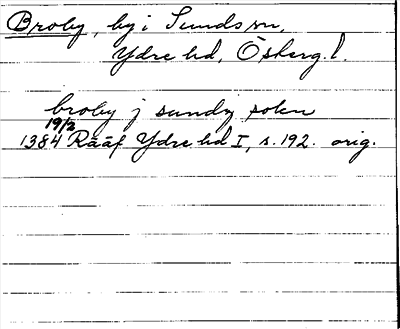 Broby, by i Sunds sn,
Ydre hd, Österg. l.
broby j sundz sokn
19/2
1384 Rääf Ydre hd I, s. 192. orig.